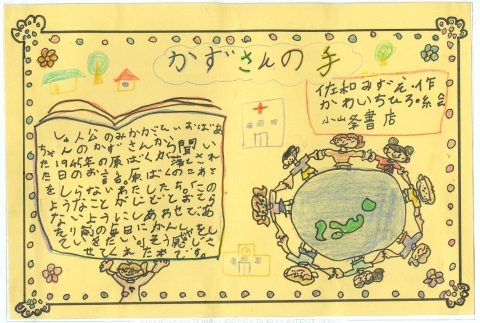 かずさんの手
佐和みずえ・作
かわいちひろ・絵
小峰書店
しゅ人公のみかがひいおばあ
ちゃんのかずさんから聞い
た1945年の原ばくが落とされ
た日のお話。原ばくのこわさ
をしらないわたしたち。この
ようなことがにどとおこら
ないようにしあわせであ
たり前の毎日にかんしゃをし
ていきたい。そう感じさ
せてくれた本です。